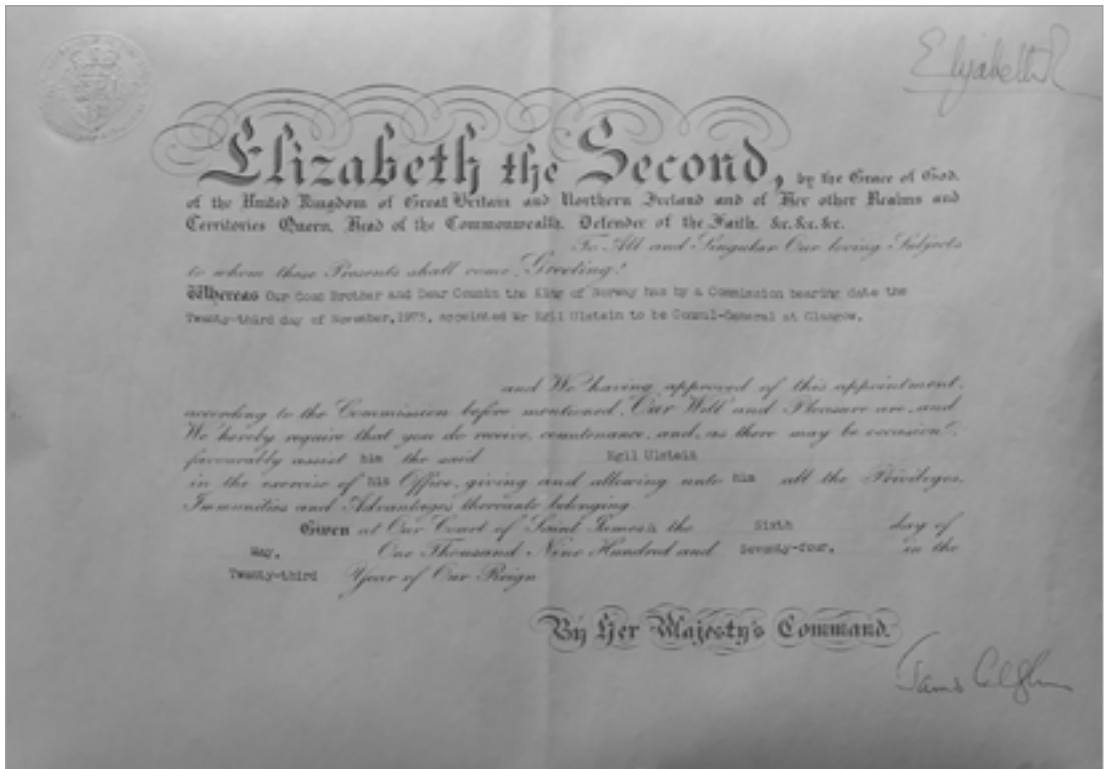 Elizabeth R
Elizabeth the Second, by the Grace of God,
of the United Kingdom of Great Britain and Northern Ireland and of Her other Realms and
Territories Queen, Head of the Commonwealth, Defender of the Faith, &c. &c. &c.
To All and Singular Our loving Subjects
to whom these Presents shall come, Greeting!
Whereas Our Good Brother and Dear Cousin the King of Norway has by a Commission bearing date the
Twenty-third day of November, 1973, appointed Mr Egil Ulstein to be Consul-General at Glasgow,
and We having approved of this appointment,
according to the Commission before mentioned, Our Will and Pleasure are, and
We hereby require that you do receive, countenance, and, as there may be occasion,
favourably assist him the said Egil Ulstein
in the exercise of his Office, giving and allowing unto him all the Privileges,
Immunities and Advantages thereunto belonging.
Given at Our Court of Saint James's, the Sixth day of
May, One Thousand Nine Hundred and Seventy-four, in the
Twenty-third Year of Our Reign
By Her Majesty's Command.